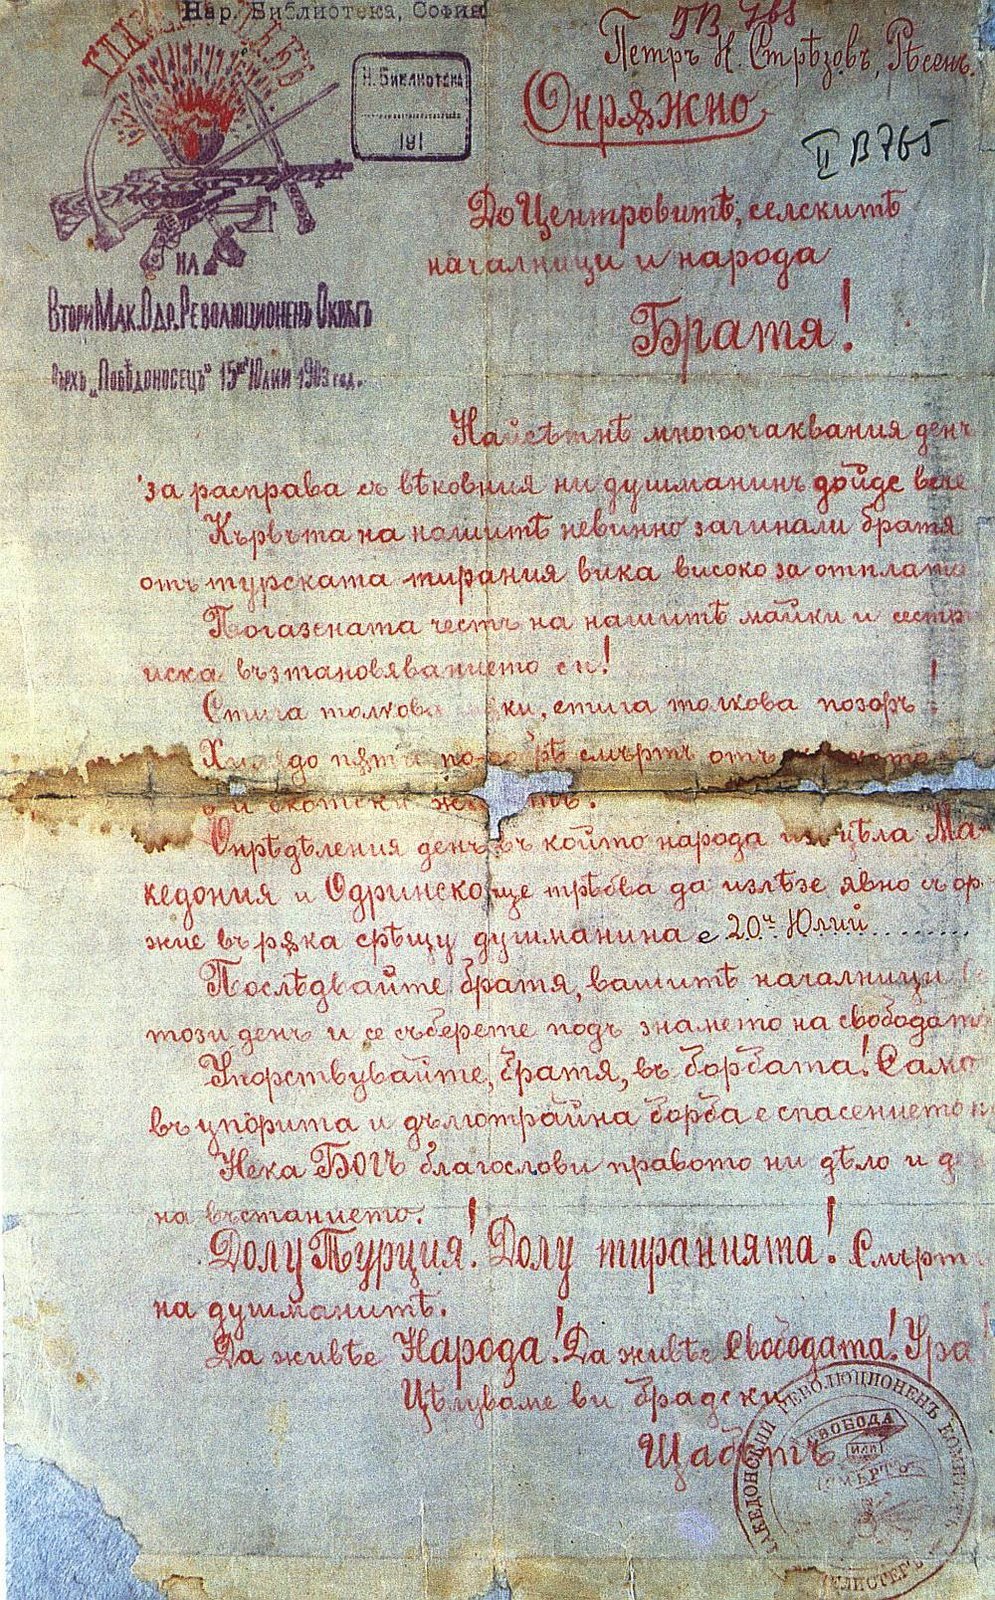 Нар. Библиотека, София
ГЛАВЕНЪ ЩАБЪ
НА
Втори Мак. Одр. Революционенъ Окрѫгъ
Върхъ „Побѣдоносецъ" 15ий Юлий 1903 год.
Н. Библиотека
191
Петръ Н. Стрѣзовъ, Рѣсенъ.
Окрѫжно
II В 765
До Центровитѣ, селскитѣ
началници и народа
Братя!
Найсѣтнѣ многоочаквания день
за расправа съ вѣковния ни душманинъ дойде вече
Кървьта на нашитѣ невинно загинали братя
отъ турската тирания вика високо за отплата
Погазената честь на нашитѣ майки и сестри
иска възтановяванието си!
Стига толкова мѫки, стига толкова позоръ!
по-добрѣ смърть отъ
и скотски животъ.
Опрѣдѣления день въ който народа изъ цѣла Ма-
кедония и Одринско ще трѣбва да излѣзе явно съ орѫ-
жие въ рѫка срѣщу душманина е 20й Юлий
Послѣдвайте братя, вашитѣ началници въ
този день и се съберете подъ знамето на свободата
Упорствувайте, братя, въ борбата! Само
въ упорита и дълготрайна борба е спасението ни
Нека БОГЪ благослови правото ни дѣло и деня
на въстанието.
Долу Турция! Долу тиранията! Смърть
на душманитѣ.
Да живѣе Народа! Да живѣе Свободата! Ура
Цѣлуваме ви брадски
Щабътъ
МАКЕДОНСКИЙ РЕВОЛЮЦИОНЕНЪ КОМИТЕТЪ
СВОБОДА
ИЛИ
СМЪРТЬ